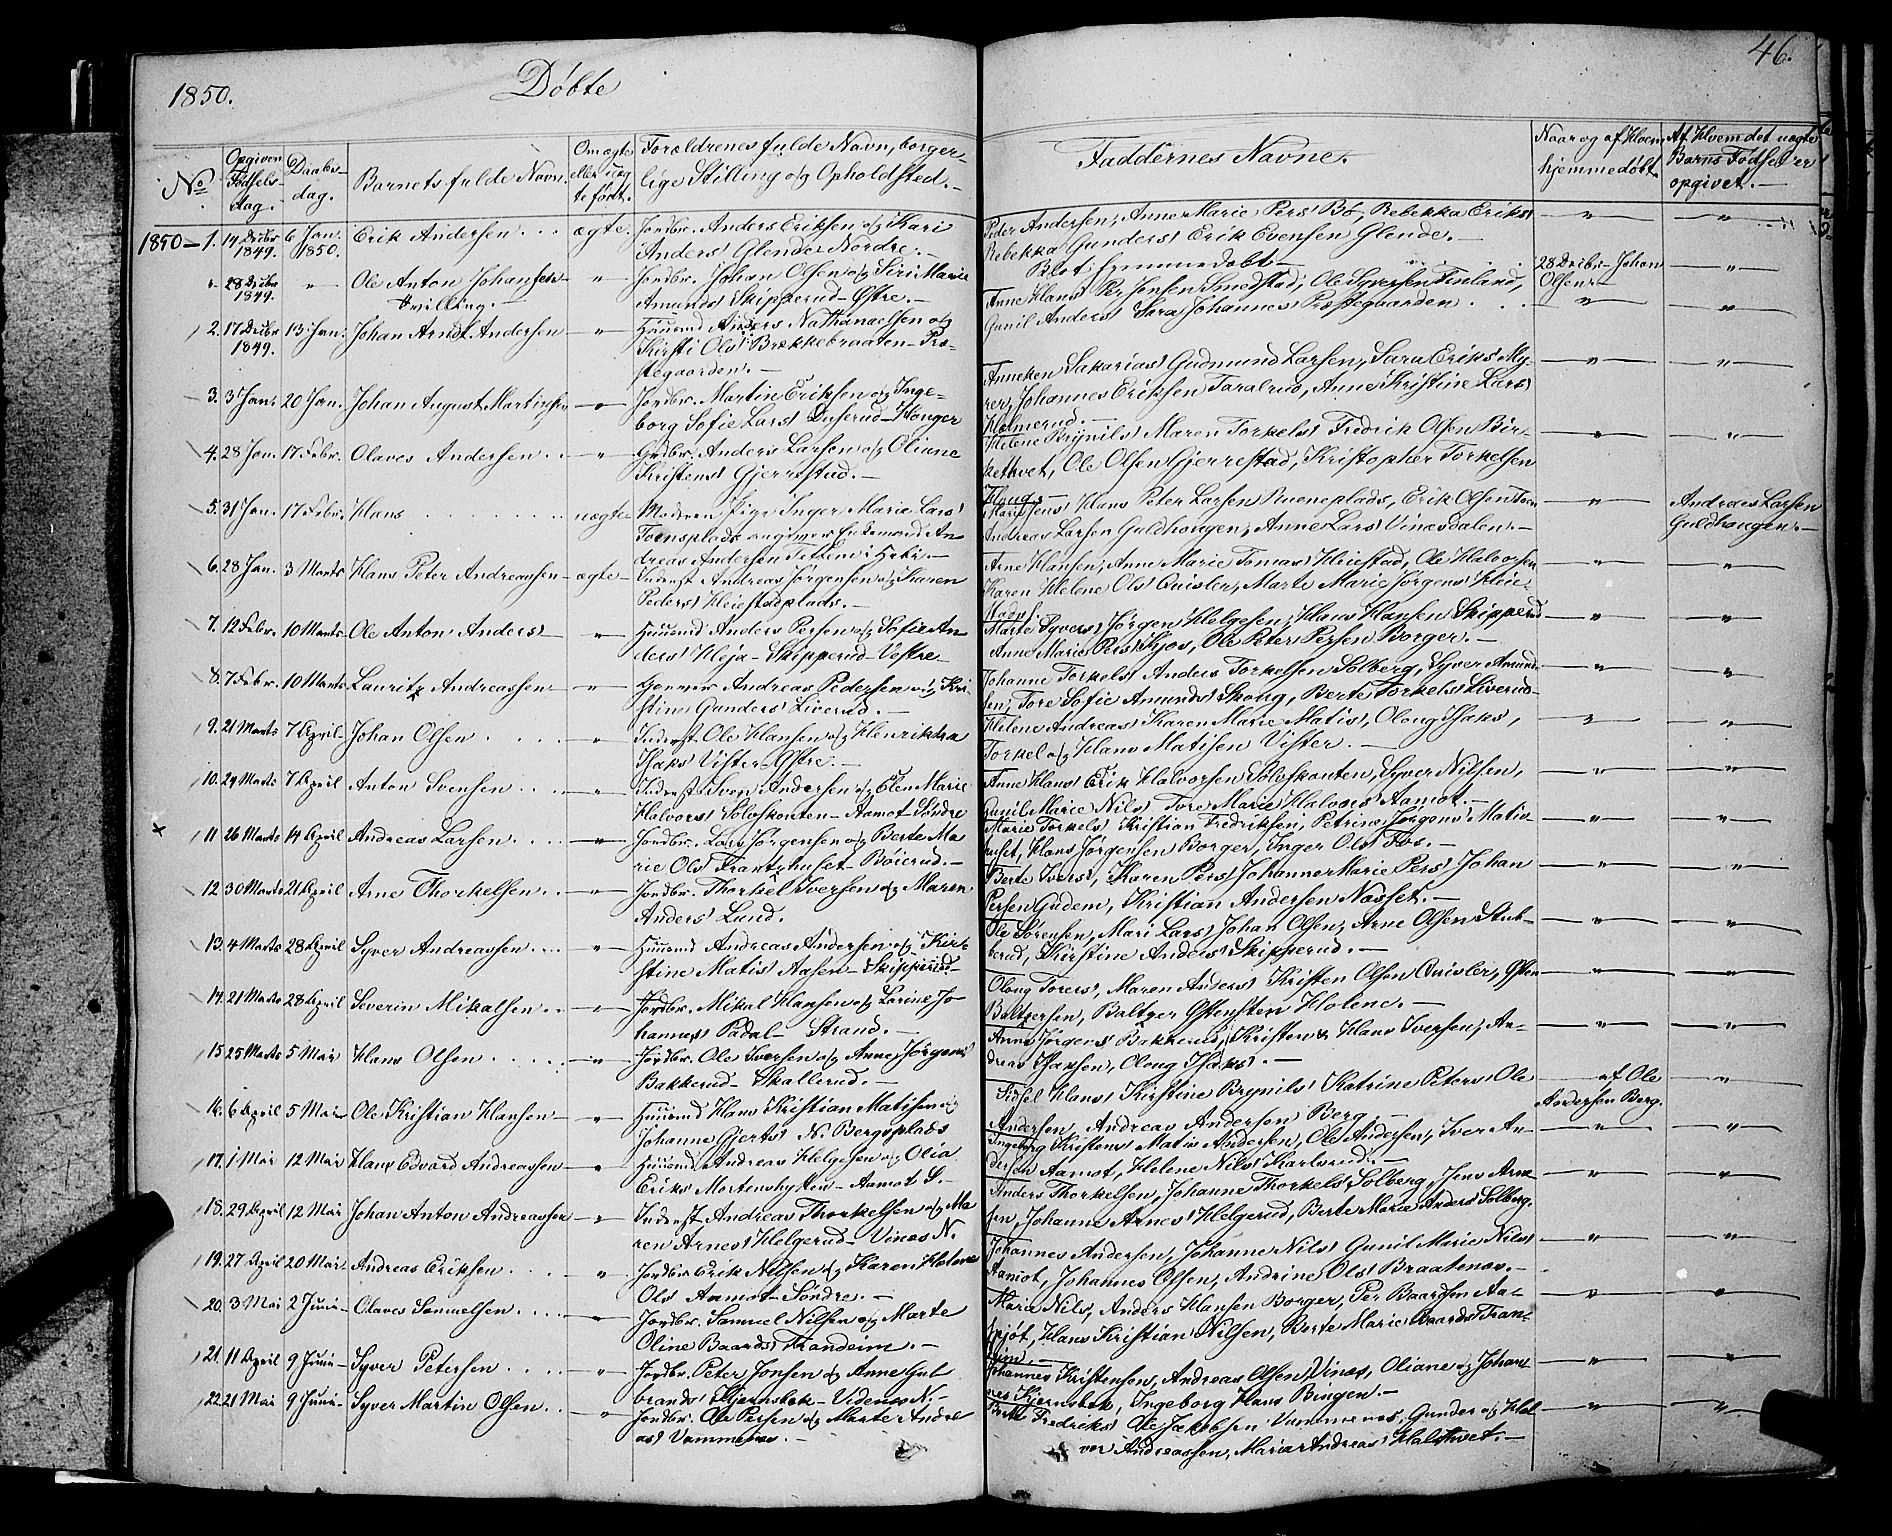 1850.
Döbte
46.
No
Opgiven Födsels- dag.
Daabs- dag.
Barnets fulde Navn.
Om ægte eller uæg- te födt.
Forældrenes fulde Navn, borger-
lige Stilling og Opholdsted.
Faddernes Navne.
Naar og af Hvem
hjemmedöbt.
Af Hvem det uægte
Barns Födsel er
opgivet.
1850 - 1. 14 Decbr 1849. 6 Jan. 1850. Erik Andersen ægte Jordbr. Anders Eriksen og Kari
Anders' Glende Nordre.
Peder Andersen, Anne Marie Pers' Bö, Rebekka Eriks'
Rebekka Gunders' Erik Evensen Glende.
" 28 Decbr 1849. " Ole Anton Johansen " Jordbr. Johan Olsen og Siri Marie
Tvilling.
Amunds' Skipperud Östre.
Blot hjemmedöbt
28 Decbr. Johan
Olsen
2. 17 Decbr 1849. 13 Jan. Johan Arndt Andersen " Huusmd Anders Nathanaelsen og
Kirsti Ols' Brækkebraaten Præ-
stegaarden.
Anne Hans' Per Jensen Smedstad, Ole Syversen Finland,
Gunil Anders' Sara Johannes' Præstegaarden.
3. 3 Jan. 20 Jan. Johan August Martinsen " Jordbr. Martin Eriksen og Inge-
borg Sofie Lars' Duserud Houger
Anneken Sakarias' Gudmund Larsen, Sara Eriks' My-
rer, Johannes Eriksen Taralrud, Anne Kristine Lars'
Holmerud.
4. 28 Jan. 17 Febr. Olaves Andersen " Grdbr. Anders Larsen og Oliane
Kristens' Gjerrestad.
Helene Brynils' Maren Torkels' Fredrik Olsen Bir-
kethvet, Ole Olsen Gjerrestad, Kristopher Torkelsen
Houg.
5. 31 Jan. 17 Febr. Hans uægte Moderen Pige Inger Marie Lars'
Toensplads angiver Enkemand An-
dreas Andersen
Jens' Hans Peter Larsen Rueneplads, Erik Olsen
Andreas Larsen Guldhougen, Anne Lars' Vinæsdalen.
Andreas Larsen
Guldhougen.
6. 28 Jan. 3 Marts Hans Peter Andreassen ægte Inderst Andreas Jörgensen og Karen
Peders' Heiestadplads.
Arne Hansen, Anne Marie Tomas' Heiestad, Ole Halvorsen
Karen Helene Ols' Quisler, Marte Marie Jörgens' Heie-
stadpl.
7. 12 Febr. 10 Marts Ole Anton Anders " Huusmd Anders Persen og Sofie An-
ders' Heja Skipperud Vestre
Marte Syvers' Jörgen Helgesen, Hans Hansen Skipperud
Anne Marie Pers' Kjos, Ole Peter Persen Borger.
8. 7 Febr. 10 Marts Lauritz Andreassen " Andreas Pedersen og Kri-
stine Gunders' Liverud.
Johanne Torkels' Anders Torkelsen Solberg, Syver Amund-
sen, Tore Sofie Amunds' Skoug, Berte Torkels' Liverud
9. 21 Marts 7 April Johan Olsen " Inderst Ole Hansen og Henrikka
Isaks' Vister Östre.
Helene Andreas' Karen Marie Matis', Oloug Isaks',
Torkel og Hans Matisen Vister.
10. 24 Marts 7 April Anton Svensen " Inderst Sven Andersen og Elen Marie
Halvors' Solofskonten Aamot Söndre
Anne Hans' Erik Halvorsen Solofskonten, Syver Nilsen,
Gunil Marie Nils' Tore Marie Halvors' Aamot.
11. 26 Marts 14 April Andreas Larsen " Jordbr. Lars Jörgensen og Berte Ma
rie Ols' Frantzhuset Böierud.
Marie Torkels' Kristian Fredriksen, Petrine Jörgens' Matis-
huset, Hans Jörgensen Borger, Inger Ols' Fos.
12. 30 Marts 21 April Arne Thorkelsen " Jordbr. Thorkel Iversen og Maren
Anders' Lund.
Berte Ivers', Karen Pers' Johanne Marie Pers' Johan
Persen Gudem, Kristian Andersen Næsset.
13. 4 Marts 28 April Syver Andreassen " Huusmd Andreas Andersen og Kir-
stine Matis' Aasen Skipperud
Ole Sörensen, Mari Lars' Johan Olsen, Arne Olsen Stub-
berud, Kirstine Anders' Skipperud.
14. 21 Marts 28 April Severin Mikalsen " Jordbr. Mikal Hansen og Larine Jo
hannes' Padal Strand.
Oloug Torers', Maren Anders' Kristen Olsen Quisler, Östen
Baltzersen, Baltzer Östensten Holene.
15. 25 Marts 5 Mai Hans Olsen " Jordbr. Ole Iversen og Anne Jörgens'
Bakkerud Skallerud.
Anne Jörgens' Bakkerud, Kristen & Hans Iversen, An-
dreas Isaksen, Oloug Isaks'.
16. 6 April 5 Mai Ole Kristian Hansen " Huusmd Hans Kristian Matisen og
Johanne Gjerts' N. Bergsplads
Sidsel Hans' Kirstine Brynils' Katrine Peters' Ole
Andersen, Andreas Andersen Berg.
af Ole
Andersen Berg.
17. 1 Mai 12 Mai Hans Edvard Andreassen " Huusmd Andreas Helgesen og Olia
Eriks' Mortenshytten Aamot S.
Ingeborg Kristens' Matis Andersen, Ole Andersen, Iver An-
dersen Aamot, Helene Nils' Karlsrud.
18. 29 April 12 Mai Johan Anton Andreassen " Inderst Andreas Thorkelsen og Ma
ren Arnes' Helgerud Vinæs N.
Anders Thorkelsen, Johanne Thorkels' Solberg, Jens Arne-
sen, Johanne Arnes' Helgerud, Berte Marie Anders' Solberg.
19. 27 April 20 Mai Andreas Eriksen " Jordbr. Erik Nilsen og Karen Helene
Ols' Aamot Söndre.
Johannes Andersen, Johanne Nils' Gunil Marie Nils'
Aamot, Johannes Olsen, Andrine Ols' Braatenæs.
20. 3 Mai 2 Juni Olaves Samuelsen " Jordbr. Samuel Nilsen og Marte
Oline Baards' Trandeim.
Marie Nils', Anders Hansen Borger, Per Baardsen Aa-
spjöt, Hans Kristian Nilsen, Berte Marie Baards' Tran-
deim.
21. 11 April 9 Juni Syver Petersen " Jordbr. Peter Jonsen og Anne Gul
brands' Kjernsbek Videnæs N.
Johannes Kristensen, Andreas Olsen Vinæs, Oliane og Johan-
nes Kjernsbek, Ingeborg Hans' Bingen.
22. 21 Mai 9 Juni Syver Martin Olsen " Jordbr. Ole Persen og Marte Andre
as' Vammenæs.
Berte Fredriks' Ole Jakobsen Vammenæs, Gunder og Hal-
vor Andreassen, Maria Andreas' Holthvet.